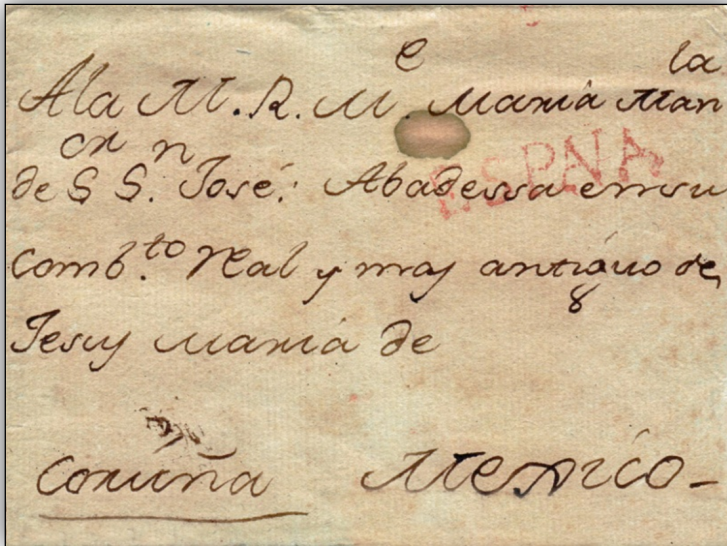 A la M. R. M.e Maria Man.la
de S.or S.n José: Abadessa en su
Comb.to Real y mas antiguo de
Jesus Maria de
Coruña Mexico-
ESPNA
8